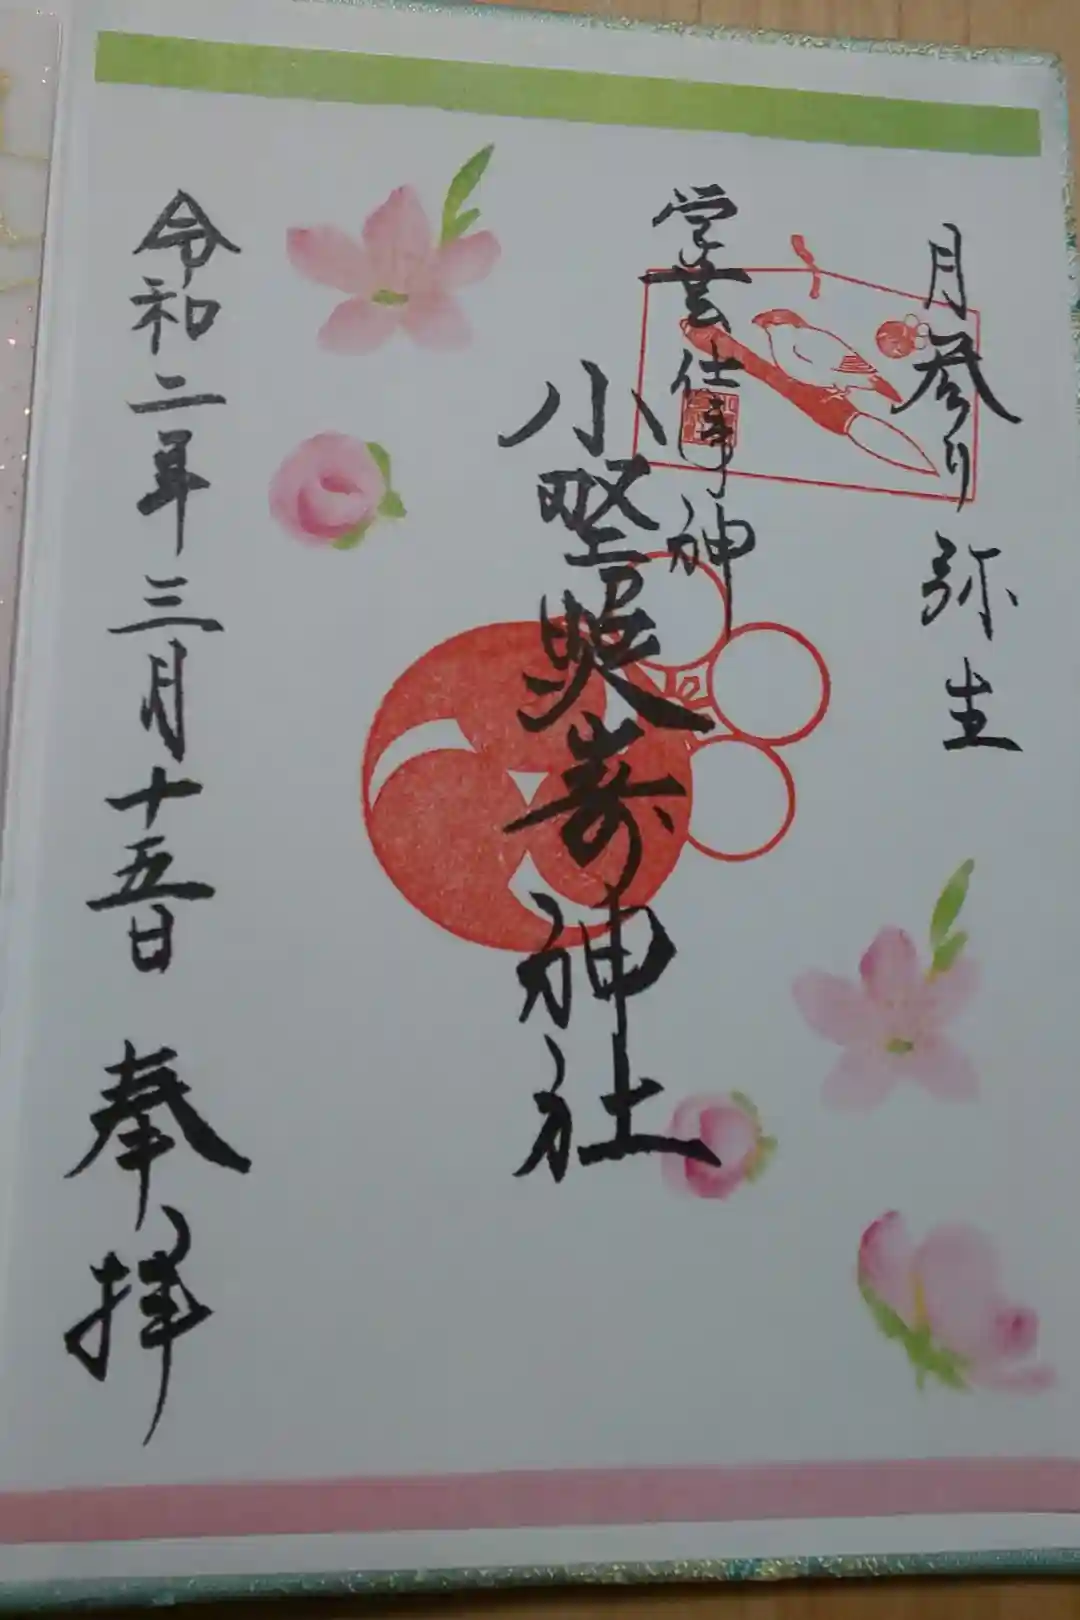 月参り 弥生
学芸仕事神
小野照嵜神社
令和二年三月十五日 奉拝